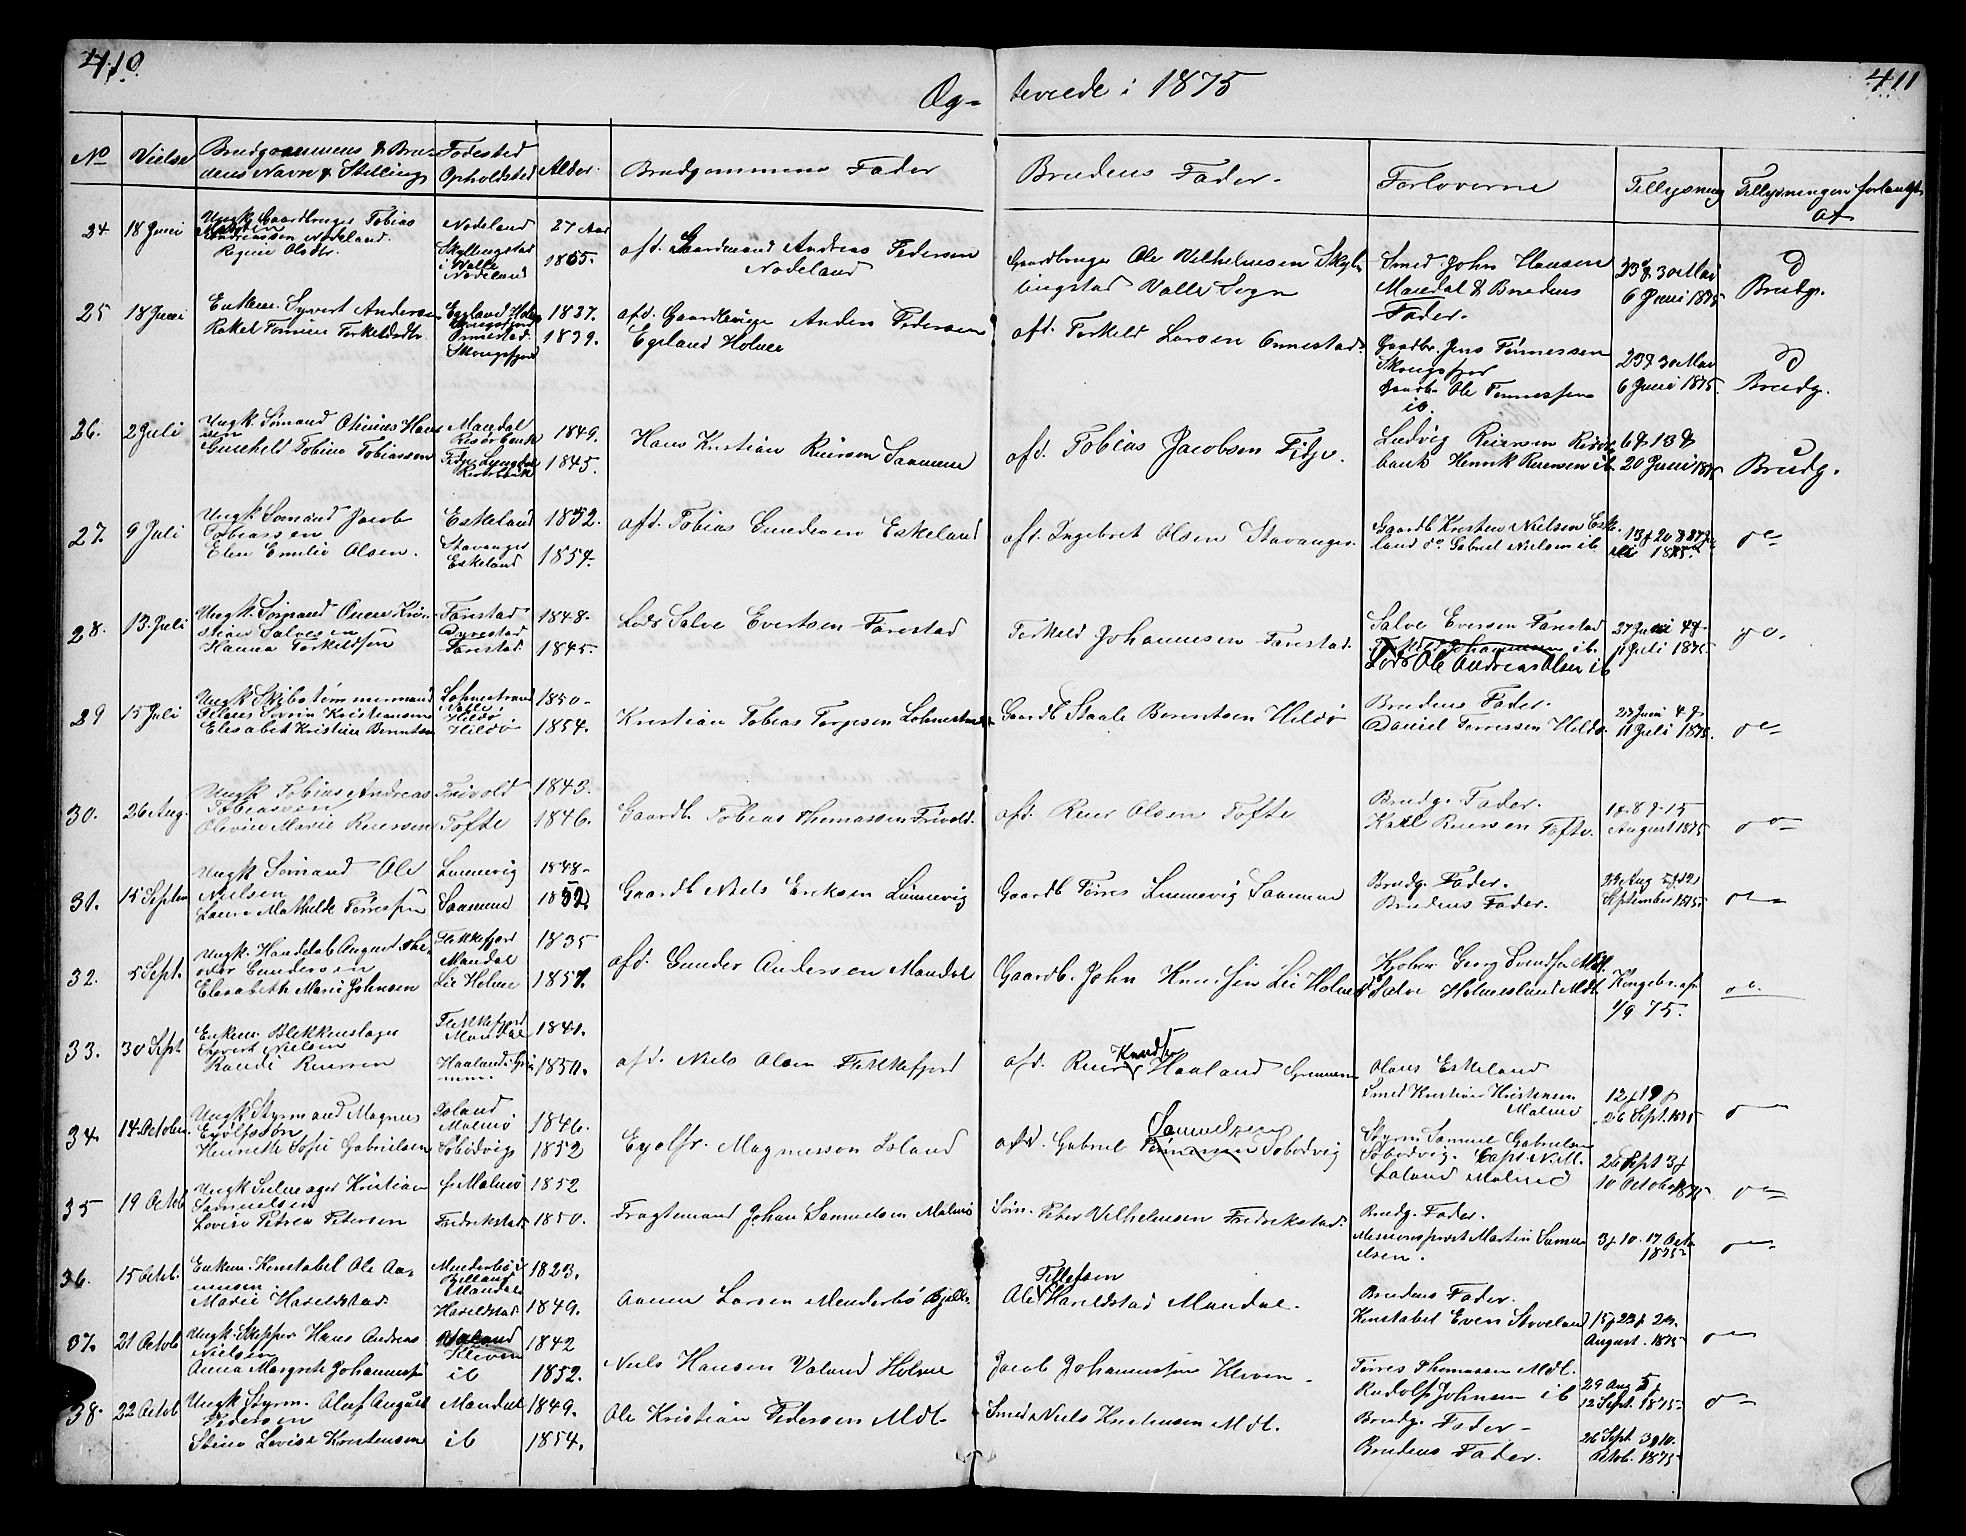 410
411
Æg- teviede i 1875
No
Vielse
Brudgommens & Bru-
dens Navn & Stilling
Fødested
Opholdsted
Alder
Brudgommens Fader
Brudens Fader
Forloverne
Tillysning
Tillysningen forlangt
af
24
18 Juni
Ungk. Gaardbruger Tobias
Andreassen Nodeland.
Regine Olsdtr.
Nodeland
Skyllingstad
i Valle
Nodeland
27 Aar
1855.
afd. Gaardmand Andreas Pedersen
Nodeland
Gaardbruger Ole Vilhelmsen Skyl-
lingstad Valle Sogn
Smed John Hansen
Mandal & Brudens
Fader.
23 & 30 Mai
6 Juni 1875
Brudg.
25
18 Juni
Enkem. Syvert Andersen
Rakel Tomine Torkeldsdtr.
Egeland Holme
Skougsfjord
Ormestad
Skougsfjord
1837.
1839.
afd. Gaardbruger Anders Pedersen
Egeland Holme
afd. Torkeld Larsen Ormestad.
Gaardbr. Jens Tønnessen
Skougsfjor
Gaardb. Ole Tønnessen
ib.
23 & 30 Mai
6 Juni 1875.
Brudg.
26.
2 Juli
Ungk. Sømand Olinius Hans
sen
Gunhild Tobine Tobiassen
Mandal
Risørbank
Fidje Lyngdal
Risørbank
1849.
1845.
Hans Kristian Reiersen Saanum
afd. Tobias Jacobsen Fidje.
Ludvig Reiersen Risør
bank Henrik Reiersen ib.
6 & 13 &
20 Juni 1875
Brudg.
27.
9 Juli
Ungk. Sømand Jacob
Tobiassen
Elen Emilie Olsen.
Eskeland
Stavanger
Eskeland
1852.
1854.
afd. Tobias Gundersen Eskeland
afd. Ingebret Olsen Stavanger.
Gaardb. Kristen Nielsen Eske-
land do. Gabriel Nielsen ib
28.
13. Juli
Ungk. Sømand Onen Kri-
stian Salvesen
Hanna Torkeldsen
Farestad
Dyrestad
Farestad.
1848.
1845.
Lods Salve Evertsen Farestad
Torkeld Johannesen Farestad.
Salve Eversen Farestad
Torkeld Johannesen ib.
Lods Ole Andreas Olsen ib
27 Juni 4 &
11 Juli 1875
29
15 Juli
Ungk. Skibstømmermand
Severin Kristiansen
Elisabet Kristine Berentsen
Lohnestrand
Valle
Hildø
Hildø
1850.
1854.
Kristian Tobias Torjesen Lohnestrand
Gaardb Staale Berentsen Hildø
Brudens Fader.
Daniel Torressen Hildø.
27 Juni 4 &
11 Juli 1875.
30.
26 Aug.
Ungk. Tobias Andreas
Tobiassen
Olevine Marie Reiersen
Frivold
Tofte
1843.
1846.
Gaardb. Tobias Thomassen Frivold.
afd. Reier Olsen Tofte
Brudg. Fader.
Karl Reiersen Tofte.
1 & 8 & 15
August 1875
31.
15 Septem
Ungk Sømand Ole
Nielsen
Laura Mathilde Tørresen
Lunnevig
Saanum
1848.
1852
Gaardb Niels Eriksen Lunnevig
Gaardb Tørres Lunnevig Saanum
Brudg. Fader.
Brudens Fader.
29 Aug 5 & 12
September 1875.
32.
5 Sept.
Ungk. Handelsb August The-
odor Gundersen
Elisabeth Marie Johnsen
Flekkefjord
Mandal
Lie Holme
1835
1857.
afd. Gunder Andersen Mandal
Gaardb. John Knudsen Lie Holme
Kjøbm Georg Svendsen Mdl.
Salve Holmesland Mdl.
Kongebr. af
1/9 75.
33.
30 Sept
Enkem. Blekkenslager
Syvert Nielsen
Randi Reiersen
Flekkefjord
Mandal
Haaland i Gri
1841.
1850.
afd. Niels Olsen Flekkefjord
afd. Reier Knudsen Haaland
Olaus Eskeland
Smed Kristian Kristensen
Malmø
12 & 19 &
26 Sept. 1875
34.
14 October
Ungk Styrmand Magnus
Eyolfsson
Henriette Sofie Gabrielsen
Island
Malmø
Søbodvig
1846.
1852
Eyolfr. Magnusson Island
afd. Gabriel Samuelsen Søbodvig
Styrm Samuel Gabrielsen
Søbodvig. Capt. N. M.
Laland Malmø
26 Sept 3 &
10 October 1875
35
19 Octob
Ungk Seilmager Kristian
Samuelsen
Lovise Petrea Petersen
Malmø
Fredrikstad
1852
1850.
Fragtemand Johan Samuelsen Malmø
Søm. Peter Vilhelmsen Fredrikstad.
Brudg. Fader.
Missionsprest Martin Samu-
elsen.
3 & 10. 17 Octo
1875
36.
15 Octb.
Enkem. Konstabel Ole Aa-
nensen
Marie Haraldstad.
Mandal
Haraldstad
1823.
1849.
Aanen Larsen
Ole Tellefsen Haraldstad Mandal.
Brudens Fader.
Konstabel Even Stoveland
15 & 22 & 29.
August. 1875
37.
21 Octob
Ungk. Skipper Hans Andreas
Nielsen
Anna Margrete Johannesen
Valand
Kleven
ib
1842
1852.
Niels Hansen Valand Holme
Jacob Johannesen Kleven
Tørres Thomassen Mdl.
Rudolf Johnsen ib
29 Aug 5 &
12 Sept. 1875
38.
22 Octob
Ungk. Styrm. Oluf August
Pedersen
Stine Lovise Kristensen
Mandal
ib
1849.
1854.
Ole Kristian Pedersen Mdl.
Smed Niels Kristensen Mdl.
Brudg. Fader
Brudens Fader.
26 Sept 3 & 10.
Octob. 1875